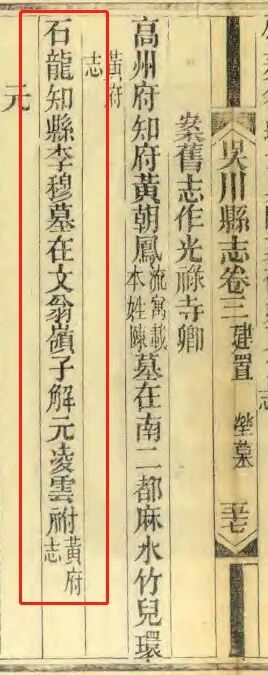 吳川縣志卷三 建置 塋墓 三七
案舊志作光祿寺卿
高州府知府黃朝鳳流寓載本姓陳墓在南二都麻水竹兒環
黃府志
石龍知縣李穆墓在文翁嶺子解元凌雲祔黃府志
元